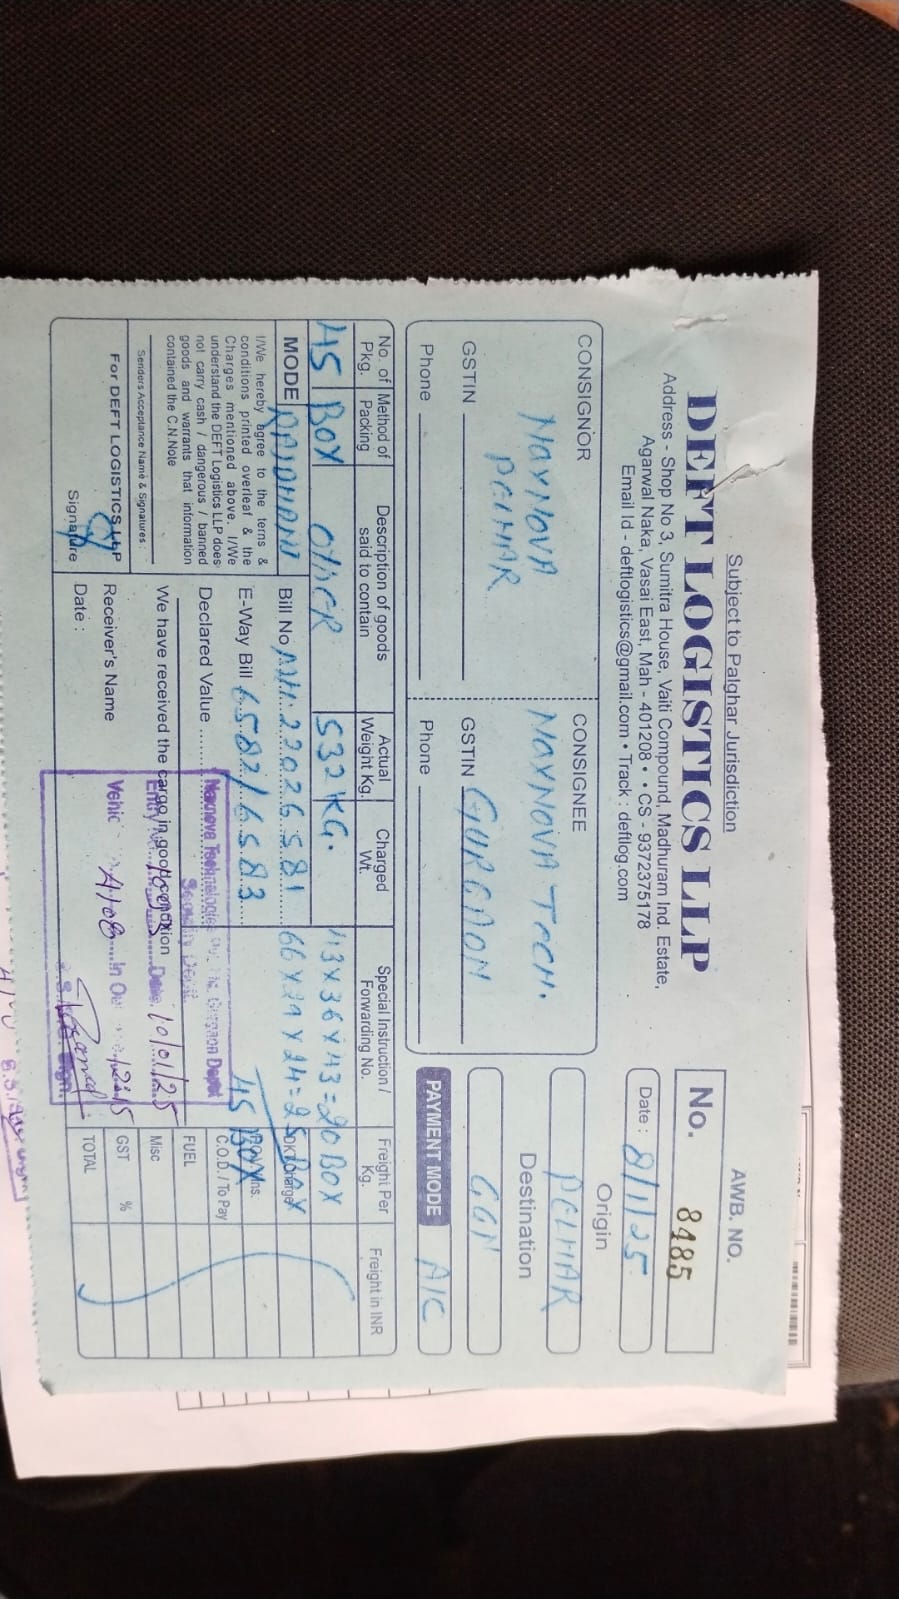 Subject to Palghar Jurisdiction
AWB. NO.
DEFT LOGISTICS LLP
No. 8485
Address - Shop No 3, Sumitra House, Vaiti Compound, Madhuram Ind. Estate,
Agarwal Naka, Vasai East, Mah - 401208 • CS - 9372375178
Email Id - deftlogistics@gmail.com • Track : deftlog.com
Date : 8/1/25
CONSIGNOR
NAVNOVA
PELHAR
GSTIN
Phone
CONSIGNEE
NAVNOVA TECH.
GSTIN GURGAON
Phone
Origin
PELHAR
Destination
GGN
PAYMENT MODE A/C
No. of Pkg.
Method of Packing
Description of goods said to contain
Actual Weight Kg.
Charged Wt.
Special Instruction / Forwarding No.
Freight Per Kg.
Freight in INR
45 BOX OTHER 532 KG.
43 X 36 X 43 = 20 BOX
MODE
Bill No
66 X 29 X 24 = 25 BOX
45 BOX
E-Way Bill
Declared Value
I/We hereby agree to the terms &
conditions printed overleaf & the
Charges mentioned above, I/We
understand the DEFT Logistics LLP does
not carry cash / dangerous / banned
goods and warrants that information
contained the C.N.Note
C.O.D. / To Pay
FUEL
Misc
GST %
TOTAL
Senders Acceptance Name & Signatures :
For DEFT LOGISTICS LLP
Signature
We have received the cargo in good condition
Receiver's Name
Date :
Navnova Technologies Gurgaon Depot
Date 10/01/25